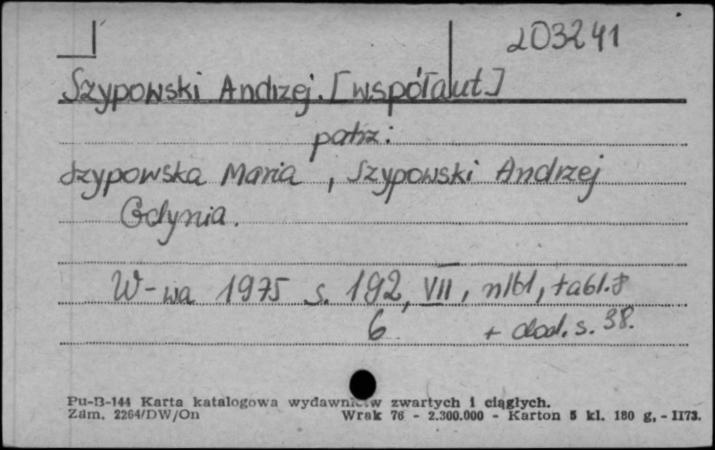 203241
Szypowski Andrzej. [współaut]
patrz:
Szypowska Maria, Szypowski Andrzej
Gdynia.
W-wa 1975 s. 192, VII, nlb1, tabl. 8
6 + dod. s. 38.
Pu-B-144 Karta katalogowa wydawnictw zwartych i ciągłych.
Zam. 2264/DW/On Wrak 76 - 2.300.000 - Karton 5 kl. 180 g, - 1173.